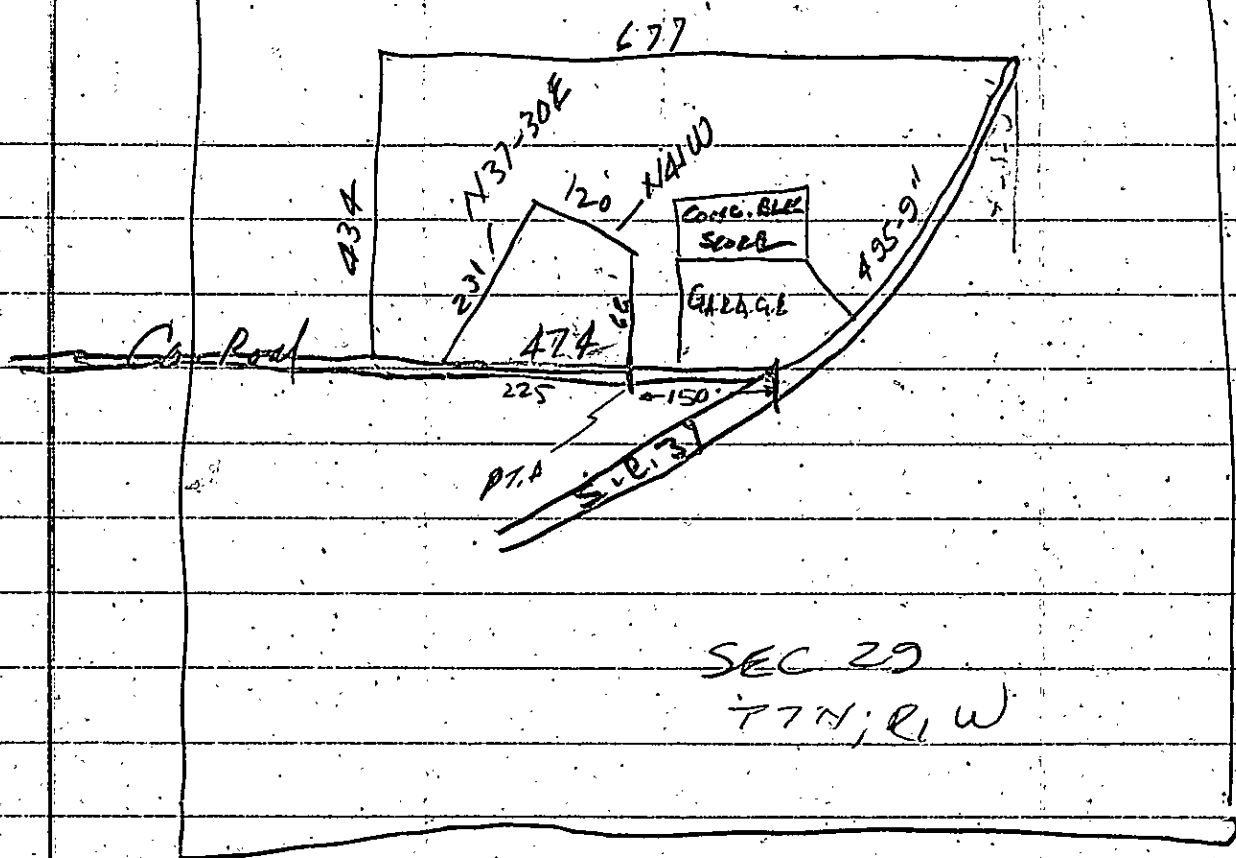 677
N37-30E
120'
N41W
434
231
CONC. BLK
STORE
495-9"
66'
GARAGE
Co Road
424
225
150'
PT. A
S.R. 37
SEC 29
T7N; R1W